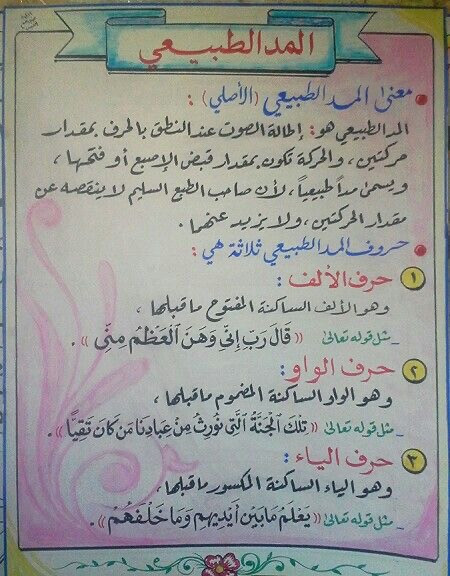 المد الطبيعي
معنى المد الطبيعي (الأصلي) :
المد الطبيعي هو: إطالة الصوت عند النطق بالحرف بمقدار
حركتين ، والحركة تكون بمقدار قبض الإصبع أو فتحها ،
ويسمى مداً طبيعياً ، لأن صاحب الطبع السليم لا ينقصه عن
مقدار الحركتين ، ولا يزيد عنهما .
حروف المد الطبيعي ثلاثة هي :
١ حرف الألف :
وهو الألف الساكنة المفتوح ما قبلها ،
_ مثل قوله تعالى (( قَالَ رَبِّ إِنِّى وَهَنَ ٱلْعَظْمُ مِنِّى )) .
٢ حرف الواو :
وهو الواو الساكنة المضموم ما قبلها ،
_ مثل قوله تعالى (( تِلْكَ ٱلْجَنَّةُ ٱلَّتِى نُورِثُ مِنْ عِبَادِنَا مَن كَانَ تَقِيًّا )) .
٣ حرف الياء :
وهو الياء الساكنة المكسور ما قبلها ،
_ مثل قوله تعالى (( يَعْلَمُ مَا بَيْنَ أَيْدِيهِمْ وَمَا خَلْفَهُمْ )) .